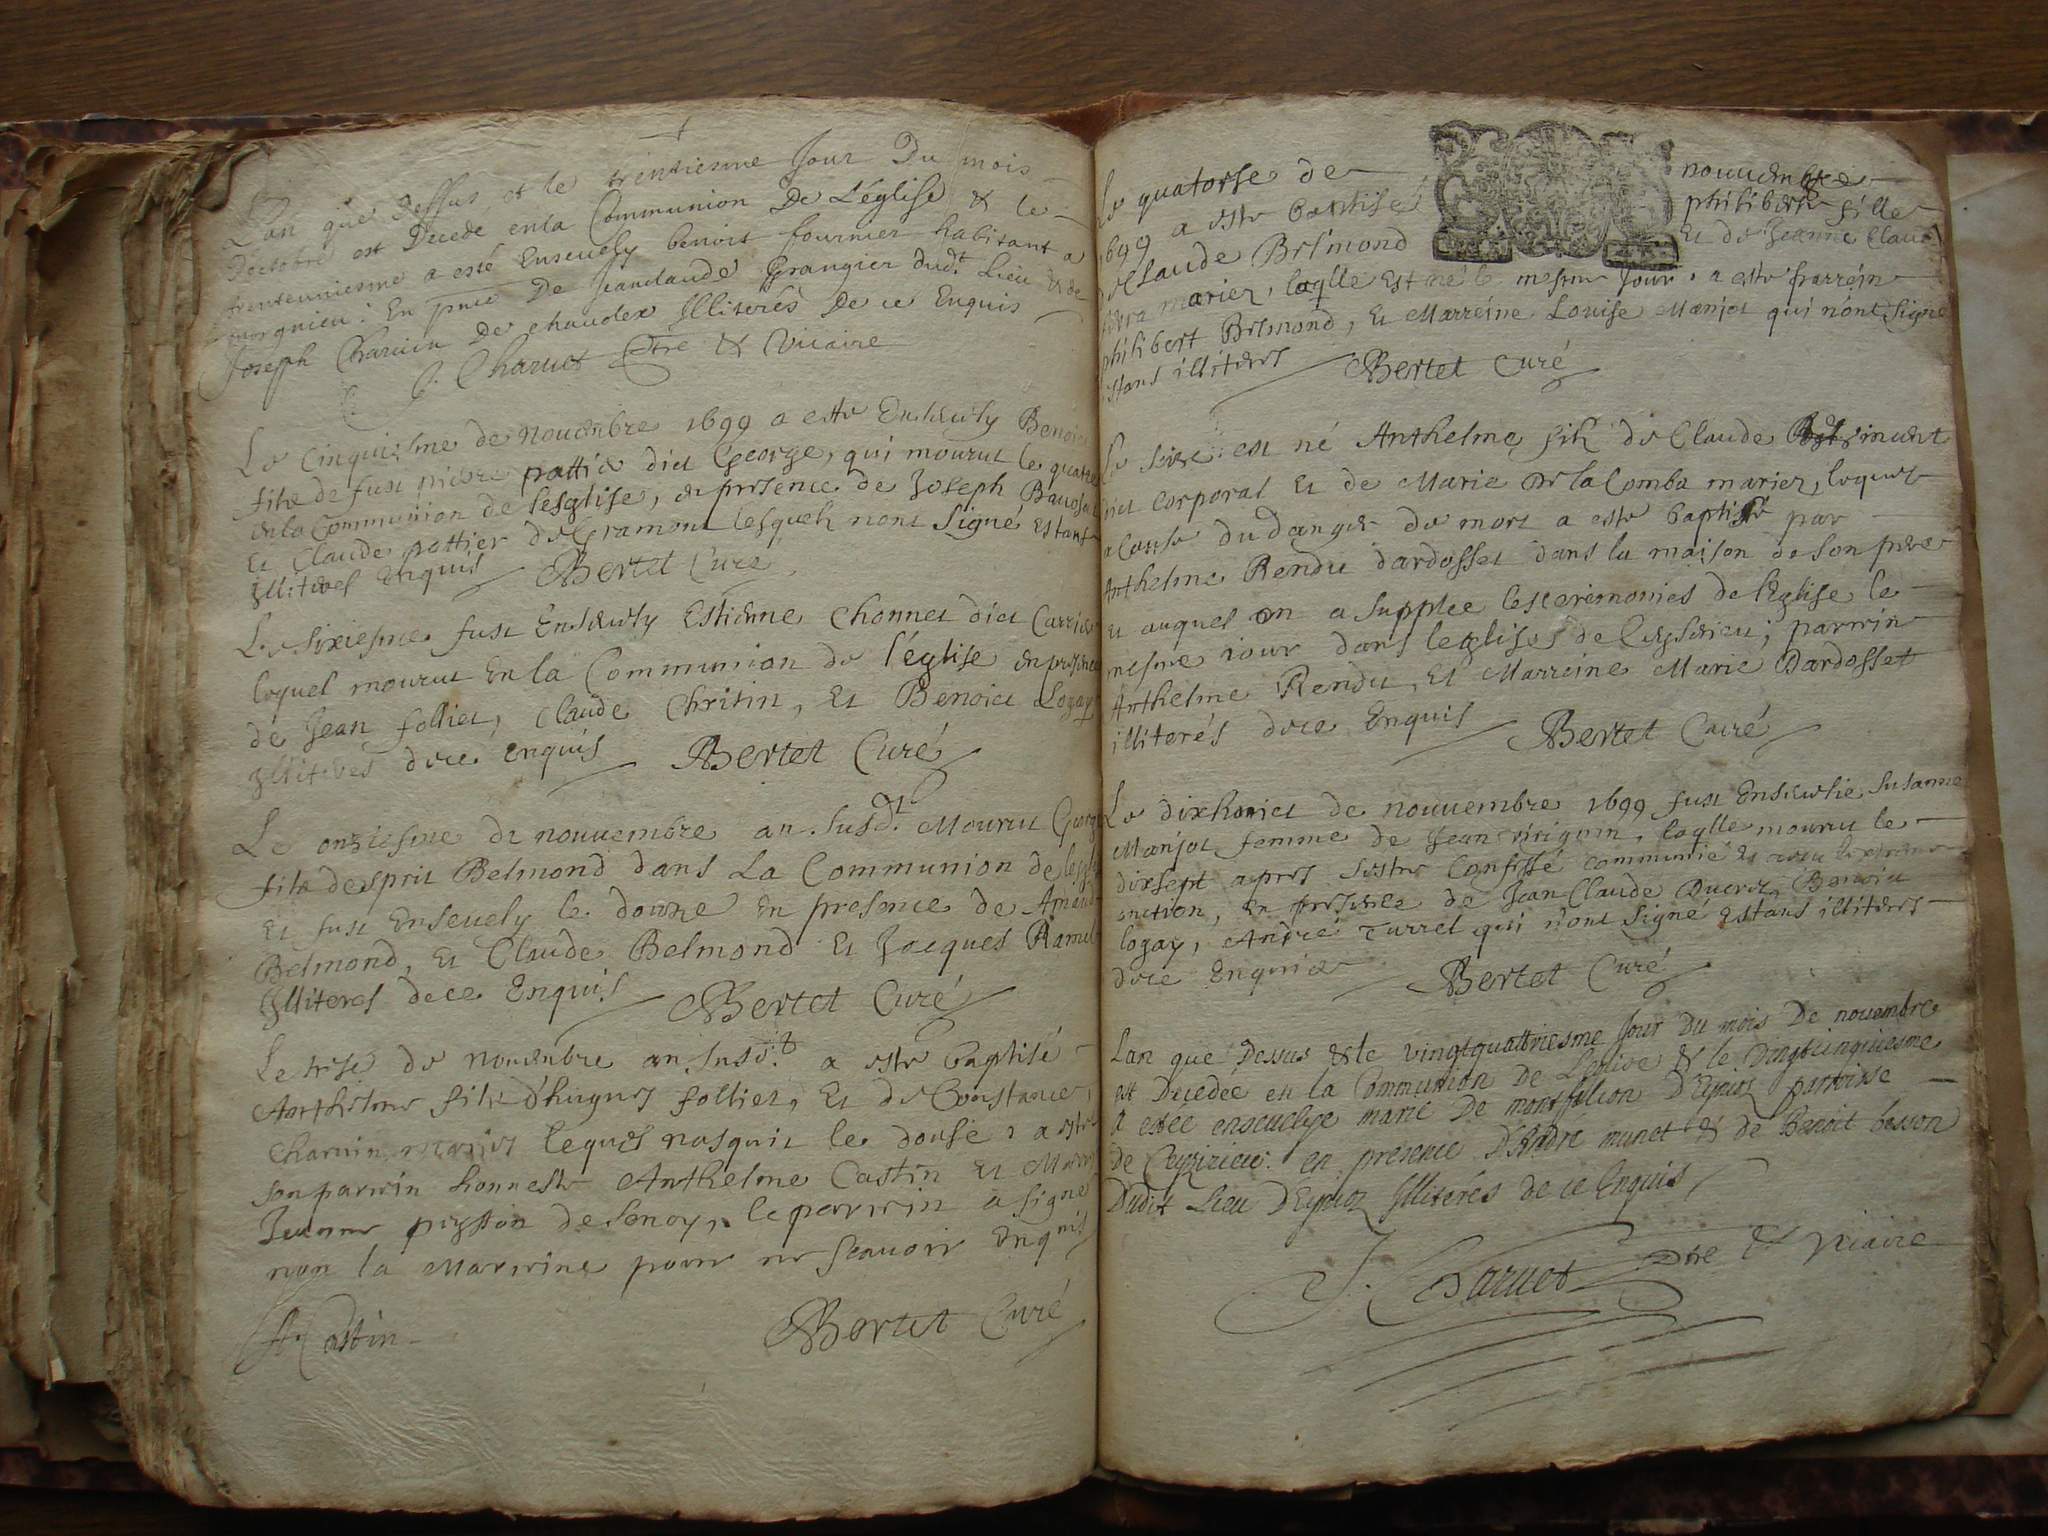 L'an que dessus et le trentiesme Jour Du mois
D'octobre est Decedé en la Communion De L'église & le
trenteuniesme a esté Enseuely benoit fournier habitant a
morgnieu: En pnce De Jeanclaude Grangier dudt Lieu & de
Joseph Charuin De chaudex Illiterés De ce Enquis
J. Charuet ptre & Vicaire
Le Cinquiesme de Nouembre 1699 a este Enseuely Benoict
filz de fust pierre pattier dict George, qui mourut le quatre
en la Communion de l'esglise, en presence de Joseph
Et Claude pattier de Gramont lesquelz n'ont Signé Estans
Illiteres Enquis Bertet Curé
Le Sixiesme fust Enseuely Estienne Chonnet dict Carrier
lequel mourut En la Communion de l'église en presence
de Jean folliet, Claude Christin, Et Benoict Logay
Illiterés de ce enquis Bertet Curé
Le onziesme de nouuembre an Susdt. Mourut George
filz d'esprit Belmond dans La Communion de
Et fust Enseuely le douze En presence de
Belmond, Et Claude Belmond Et Jacques
Illiteres de ce Enquis Bertet Curé
Le trese de Nouembre an Susdt. a este baptisé
Anthelme filz d'hugues folliet, Et de Constance
Charuin mariez lequel nasquit le douse a este
Son parrin honneste Anthelme Castin Et Marrine
Jeanne pigsson de Senoy, le parrin a signé
non la Marrine pour ne Scauoir Enquis
A Castin Bertet Curé
Le quatorse de nouuembre
1699 a este baptisée philiberte fille
de Claude Belmond Et de Jeanne Claud 
mariez, laqlle Est née le mesme Jour, a este parrein
philibert Belmond, Et Marréine Louise Manjot qui n'ont Signé
Estans illiteres Bertet Curé
Le seize est né Anthelme filz de Claude
dict Corporal Et de Marie De la Comba mariez, lequel
a Cause du danger de mort a este baptisé par
Anthelme Rendu dardosset dans la maison de Son pere
Et auquel on a Supplee les ceremonies de l'Eglise le
mesme iour dans leglise de Ceyserieu; parrin
Anthelme Rendu, Et Marreine Marie Dardosset
illiterés de ce Enquis Bertet Curé
Le dixhuict de nouuembre 1699 fust Enseuelie Susanne
Manjot femme de Jean, laqlle mourut le
dixsept apres s'estre Confessé communié Et receu
onction, En presence de Jean Claude Ducroz, Benoict
logay, André Turrel qui n'ont Signé Estans illiteres
de ce Enquis Bertet Curé
Lan que Dessus & le vingtquatriesme Jour Du mois De nouembre
est Decedée en la Communion De L'eglise & le Vingtcinquiesme
A estée enseuelye marie De montfalcon D'Eyuoz parroisse
de Ceyzirieu en presence D'Andre munet & de Benoit besson
Dudit Lieu D'Eyuoz Illiterés de ce Enquis
J. Charuet ptre & Vicaire